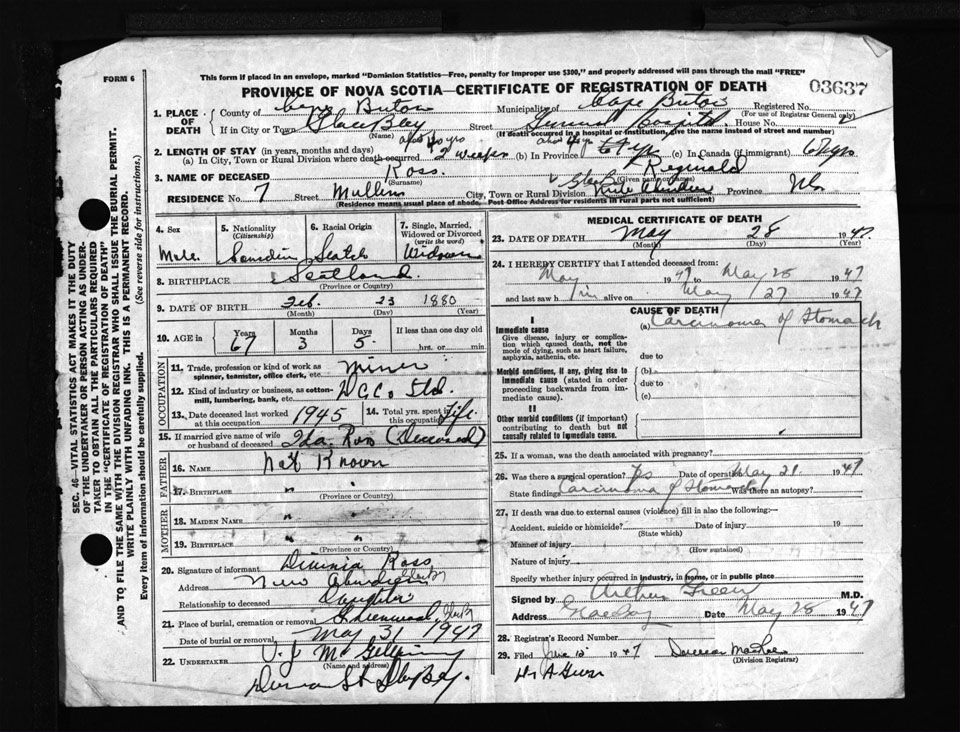 FORM 6
This form if placed in an envelope, marked "Dominion Statistics—Free, penalty for improper use $300," and properly addressed will pass through the mail "FREE"
PROVINCE OF NOVA SCOTIA—CERTIFICATE OF REGISTRATION OF DEATH
03637
1. PLACE OF DEATH County of Cape Breton Municipality of Cape Breton Registered No.
(For use of Registrar General only)
If in City or Town Glace Bay Street General Hospital House No.
(Name) (If death occurred in a hospital or institution, give the name instead of street and number)
2. LENGTH OF STAY (in years, months and days)
(a) In City, Town or Rural Division where death occurred 2 weeks (b) In Province (c) In Canada (if immigrant)
3. NAME OF DECEASED Ross Reginald
(Surname) (Given name or names)
RESIDENCE No. 7 Street Mullins City, Town or Rural Division Province N.S.
(Residence means usual place of abode. Post-Office Address for residents in rural parts not sufficient)
4. Sex
Male
5. Nationality (Citizenship)
Canadian
6. Racial Origin
Scotch
7. Single, Married, Widowed or Divorced (write the word)
Widower
8. BIRTHPLACE Scotland
(Province or Country)
9. DATE OF BIRTH Feb. 23 1880
(Month) (Day) (Year)
10. AGE in Years 67 Months 3 Days 5 If less than one day old
hrs. or min.
OCCUPATION
11. Trade, profession or kind of work as spinner, teamster, office clerk, etc. Miner
12. Kind of industry or business, as cotton-mill, lumbering, bank, etc. Ltd.
13. Date deceased last worked at this occupation 1945
14. Total yrs. spent in this occupation Life
15. If married give name of wife or husband of deceased Ross (Deceased)
FATHER
16. NAME Not Known
17. BIRTHPLACE " "
(Province or Country)
MOTHER
18. MAIDEN NAME " "
19. BIRTHPLACE " "
(Province or Country)
20. Signature of informant Ross
Address New Aberdeen
Relationship to deceased Daughter
21. Place of burial, cremation or removal Greenwood
Date of burial or removal May 31 1947
22. UNDERTAKER V. J. McGillivray
(Name and address)
MEDICAL CERTIFICATE OF DEATH
23. DATE OF DEATH May 28 1947
(Month) (Day) (Year)
24. I HEREBY CERTIFY that I attended deceased from:
May 1947 to May 28 1947
and last saw him alive on May 27 1947
CAUSE OF DEATH
I
Immediate cause (a) Carcinoma of Stomach
Give disease, injury or complication which caused death, not the mode of dying, such as heart failure, asphyxia, asthenia, etc.
due to
Morbid conditions, if any, giving rise to immediate cause (stated in order proceeding backwards from immediate cause).
(b)
due to
(c)
II
Other morbid conditions (if important) contributing to death but not causally related to immediate cause.
25. If a woman, was the death associated with pregnancy?
26. Was there a surgical operation? Yes Date of operation May 21. 1947
State findings Carcinoma of Stomach Was there an autopsy?
27. If death was due to external causes (violence) fill in also the following:—
Accident, suicide or homicide? Date of injury 19
(State which)
Manner of injury
(How sustained)
Nature of injury
Specify whether injury occurred in industry, in home, or in public place
Signed by Arthur Green M.D.
Address Glace Bay Date May 28 1947
28. Registrar's Record Number
29. Filed June 12 1947
(Division Registrar)
Dr A Green
SEC. 46—VITAL STATISTICS ACT MAKES IT THE DUTY
OF THE UNDERTAKER OR PERSON ACTING AS UNDER-
TAKER TO OBTAIN ALL THE PARTICULARS REQUIRED
IN THE "CERTIFICATE OF REGISTRATION OF DEATH"
AND TO FILE THE SAME WITH THE DIVISION REGISTRAR WHO SHALL ISSUE THE BURIAL PERMIT.
WRITE PLAINLY WITH UNFADING INK. THIS IS A PERMANENT RECORD.
Every item of information should be carefully supplied. (See reverse side for instructions.)